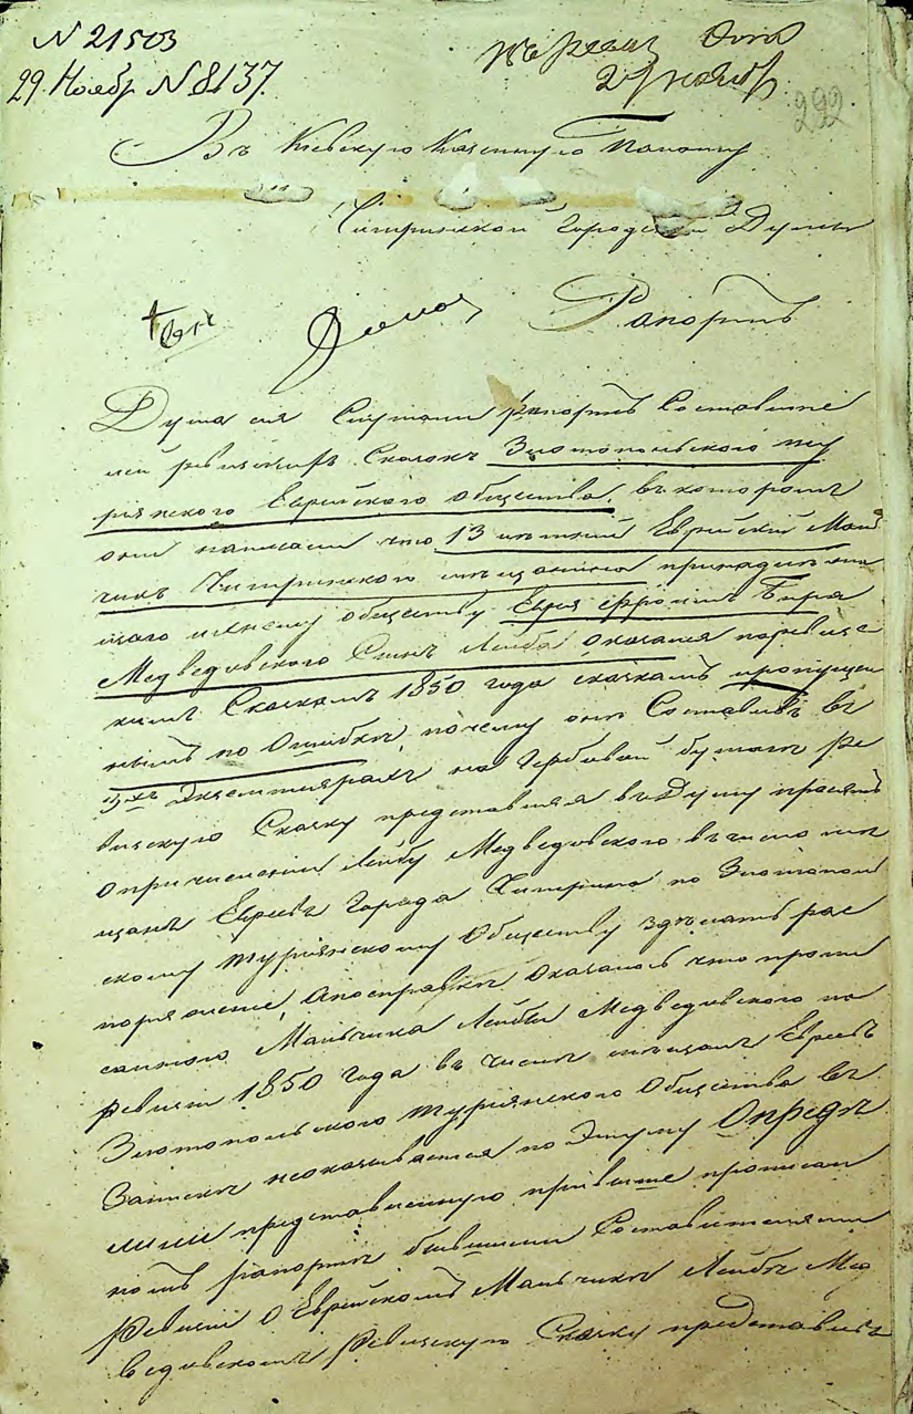 N 21503
29. Ноябр N 8137.
292
Въ Киевскую Казенную Палату
Чигринской Городской Думы
Рапортъ
Дума сия Слушали рапортъ Составите
лей ревизскихъ Сказокъ Златопольского ту
рiянского Еврейского общества, въ которомъ
они написали что 13 лѣтний Еврейский Маль
чикъ Чигринского мѣщанина принадлежа
щаго къ обществу Еврея Фроима Бера
Медведовского Сынъ Лейба оказался по ревизс
кимъ Сказкамъ 1850 года сказкамъ пропущен
нымъ по Ошибки, почему они Составивъ въ
2хъ Экземплярахъ на Гербовой бумаги ре
визскую Сказку представляя въ Думу просятъ
о причислении Лейбу Медведовского въ число мѣ
щанъ Евреевъ Города Чигрина по Златополь
скому турiянскому Обществу здѣлать рас
поряжение, А по справки Оказалось что пропи
санного Мальчика Лейбы Медведовского по
ревизи 1850 года въ числѣ мѣщанъ Евреевъ
Златопольского турiянского Общества въ
Записки неоказывается по Этому Опредѣ
лили представленную при выше прописан
номъ рапорти бывшими Составителями
Ревизий о Еврейскомъ Мальчики Лейбѣ Мед
ведовскомъ Ревизскую Сказку представить